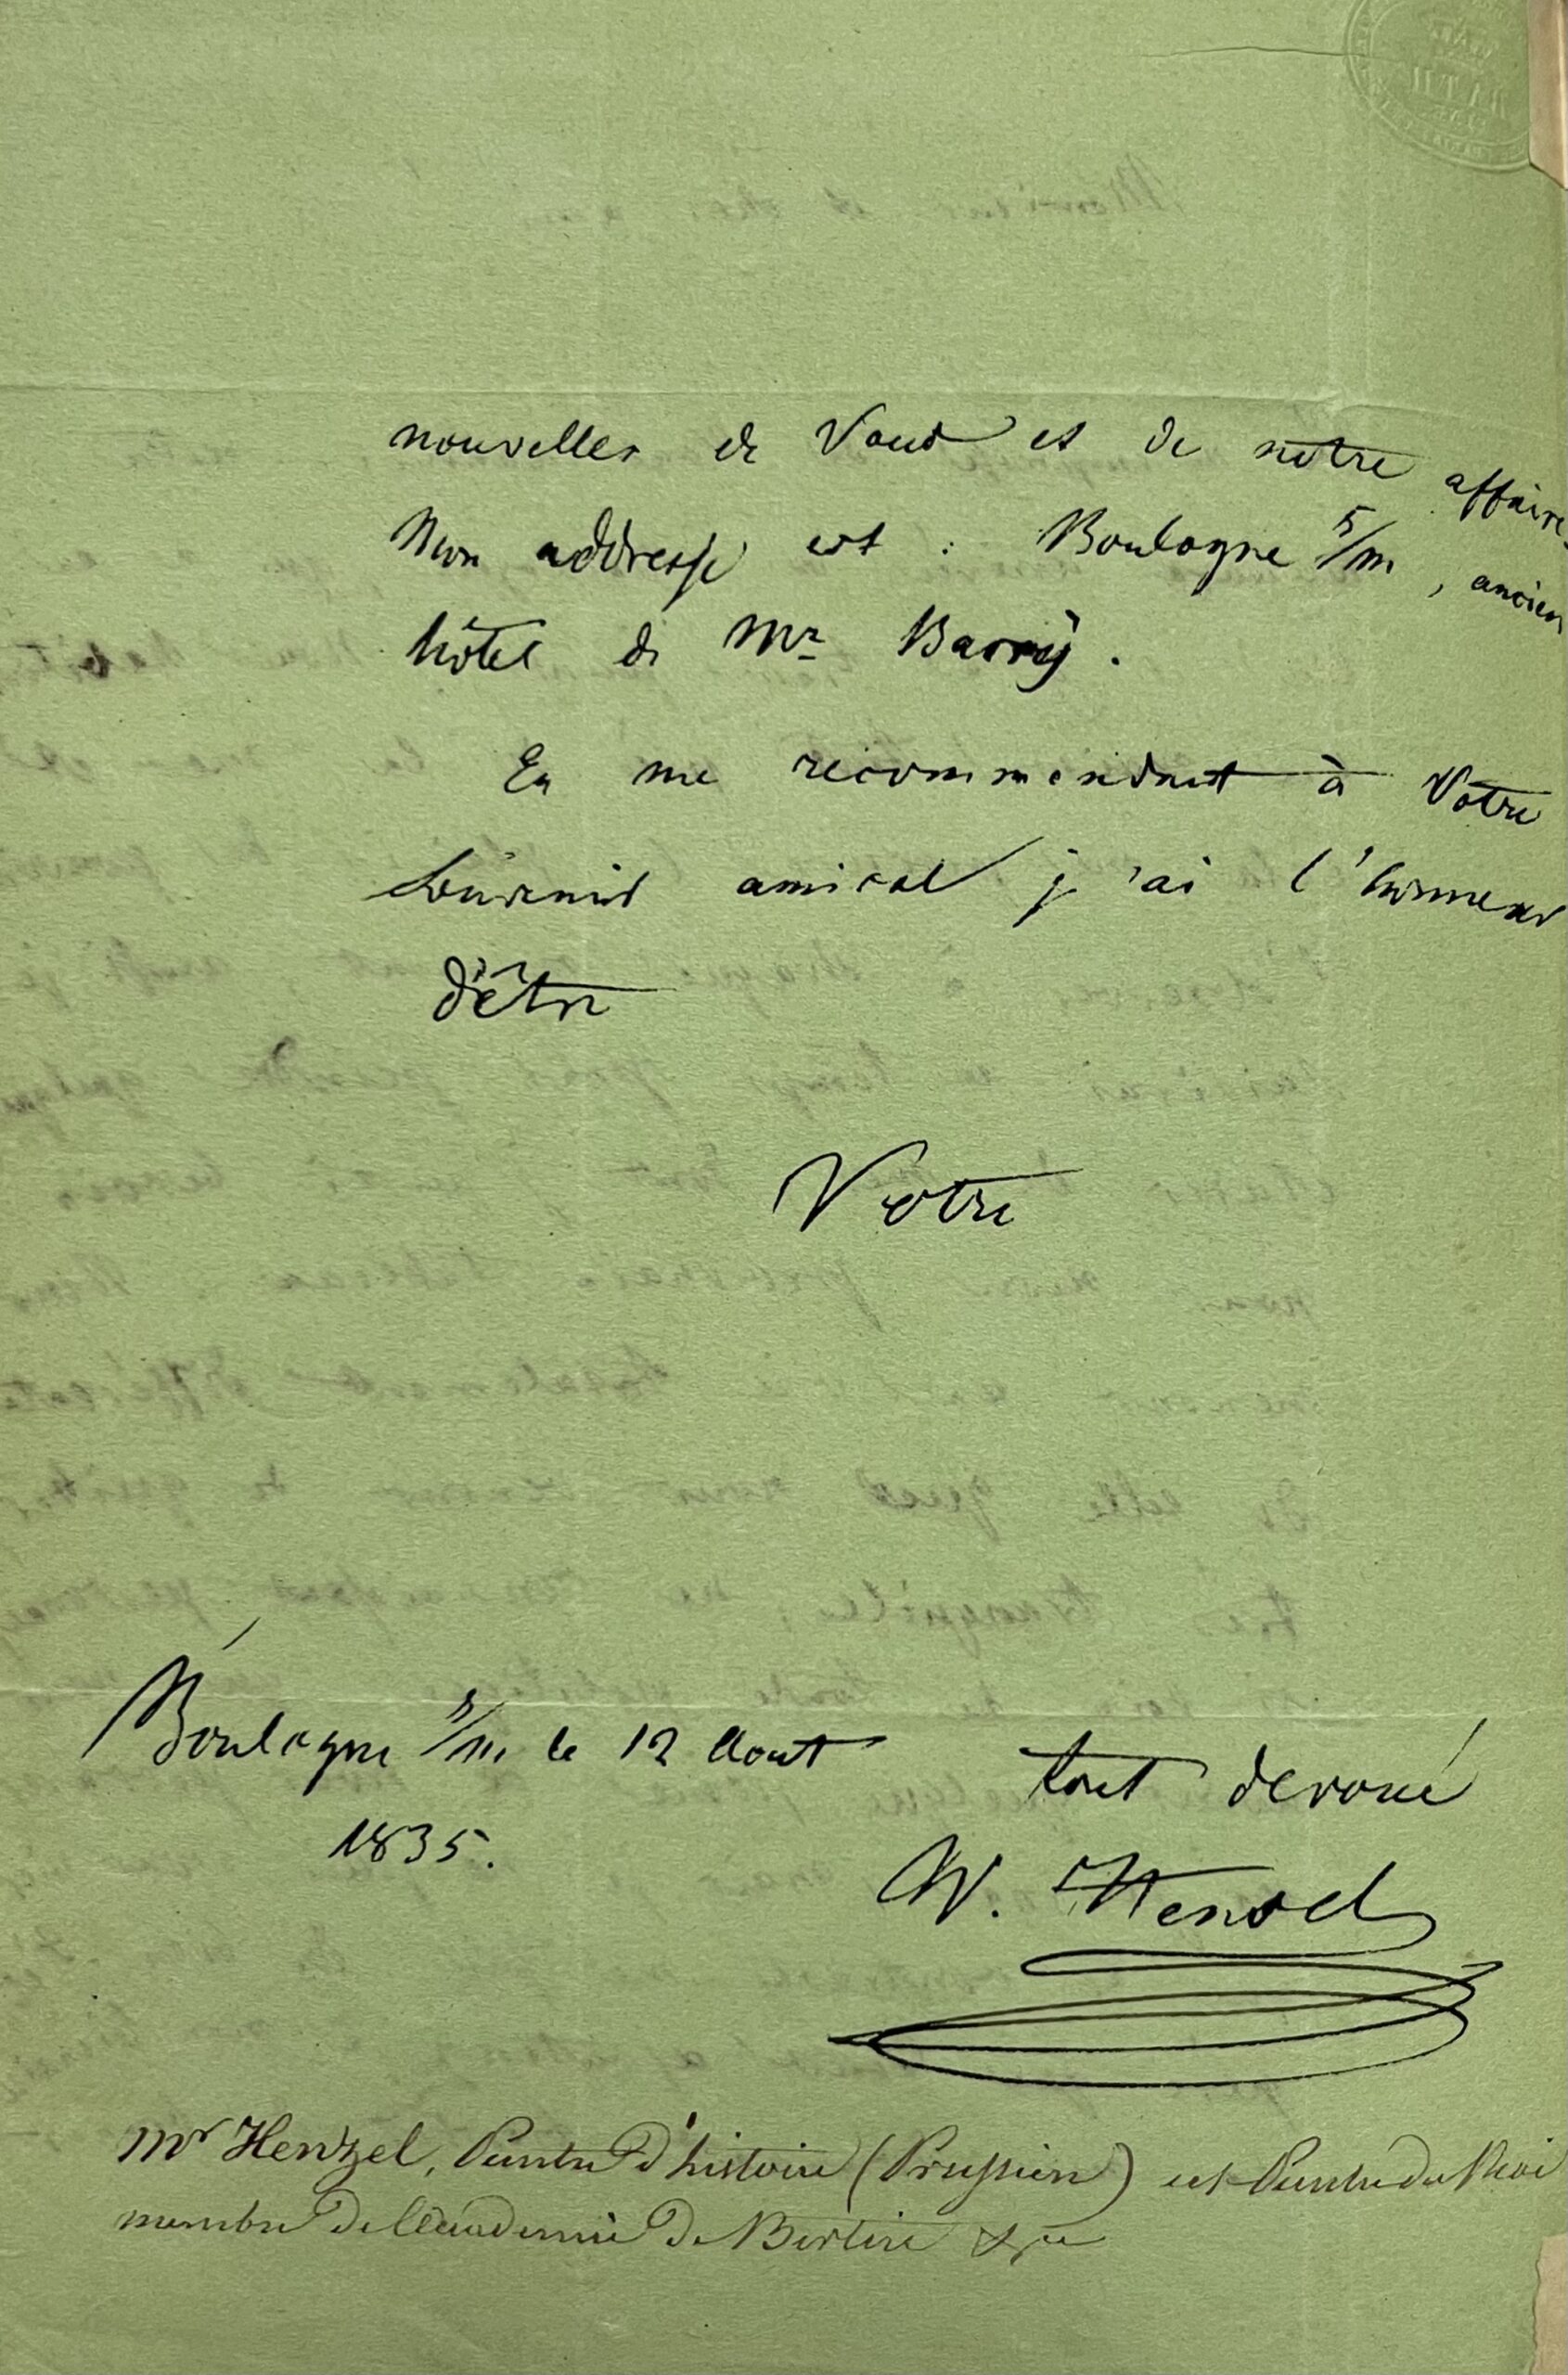 nouvelles de Vous et de nôtre affaire.
Mon addresse est : Boulogne s/m, ancien
hôtel de Mr Barry.
En me recommendant à Votre
souvenir amical j'ai l'honneur
d'être
Votre
Boulogne s/m. le 12 Aout
1835.
tout devoué
W. Hensel
Mr Henzel, Peintre d'histoire (Prussien) est Peintre du Roi
membre de l'Academie de Berlin